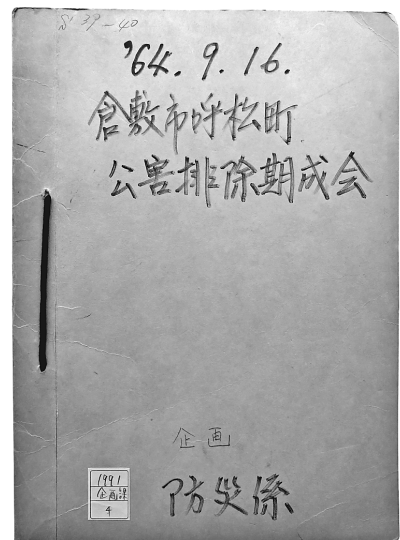 S 39-40
'64. 9. 16.
倉敷市呼松町
公害排除期成会
企画
防災係
1991
企画課
4